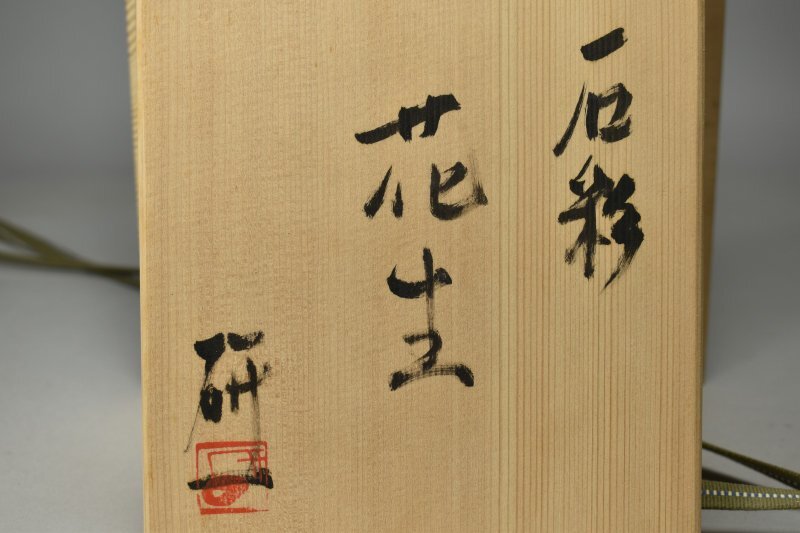 石彩
花生
研一